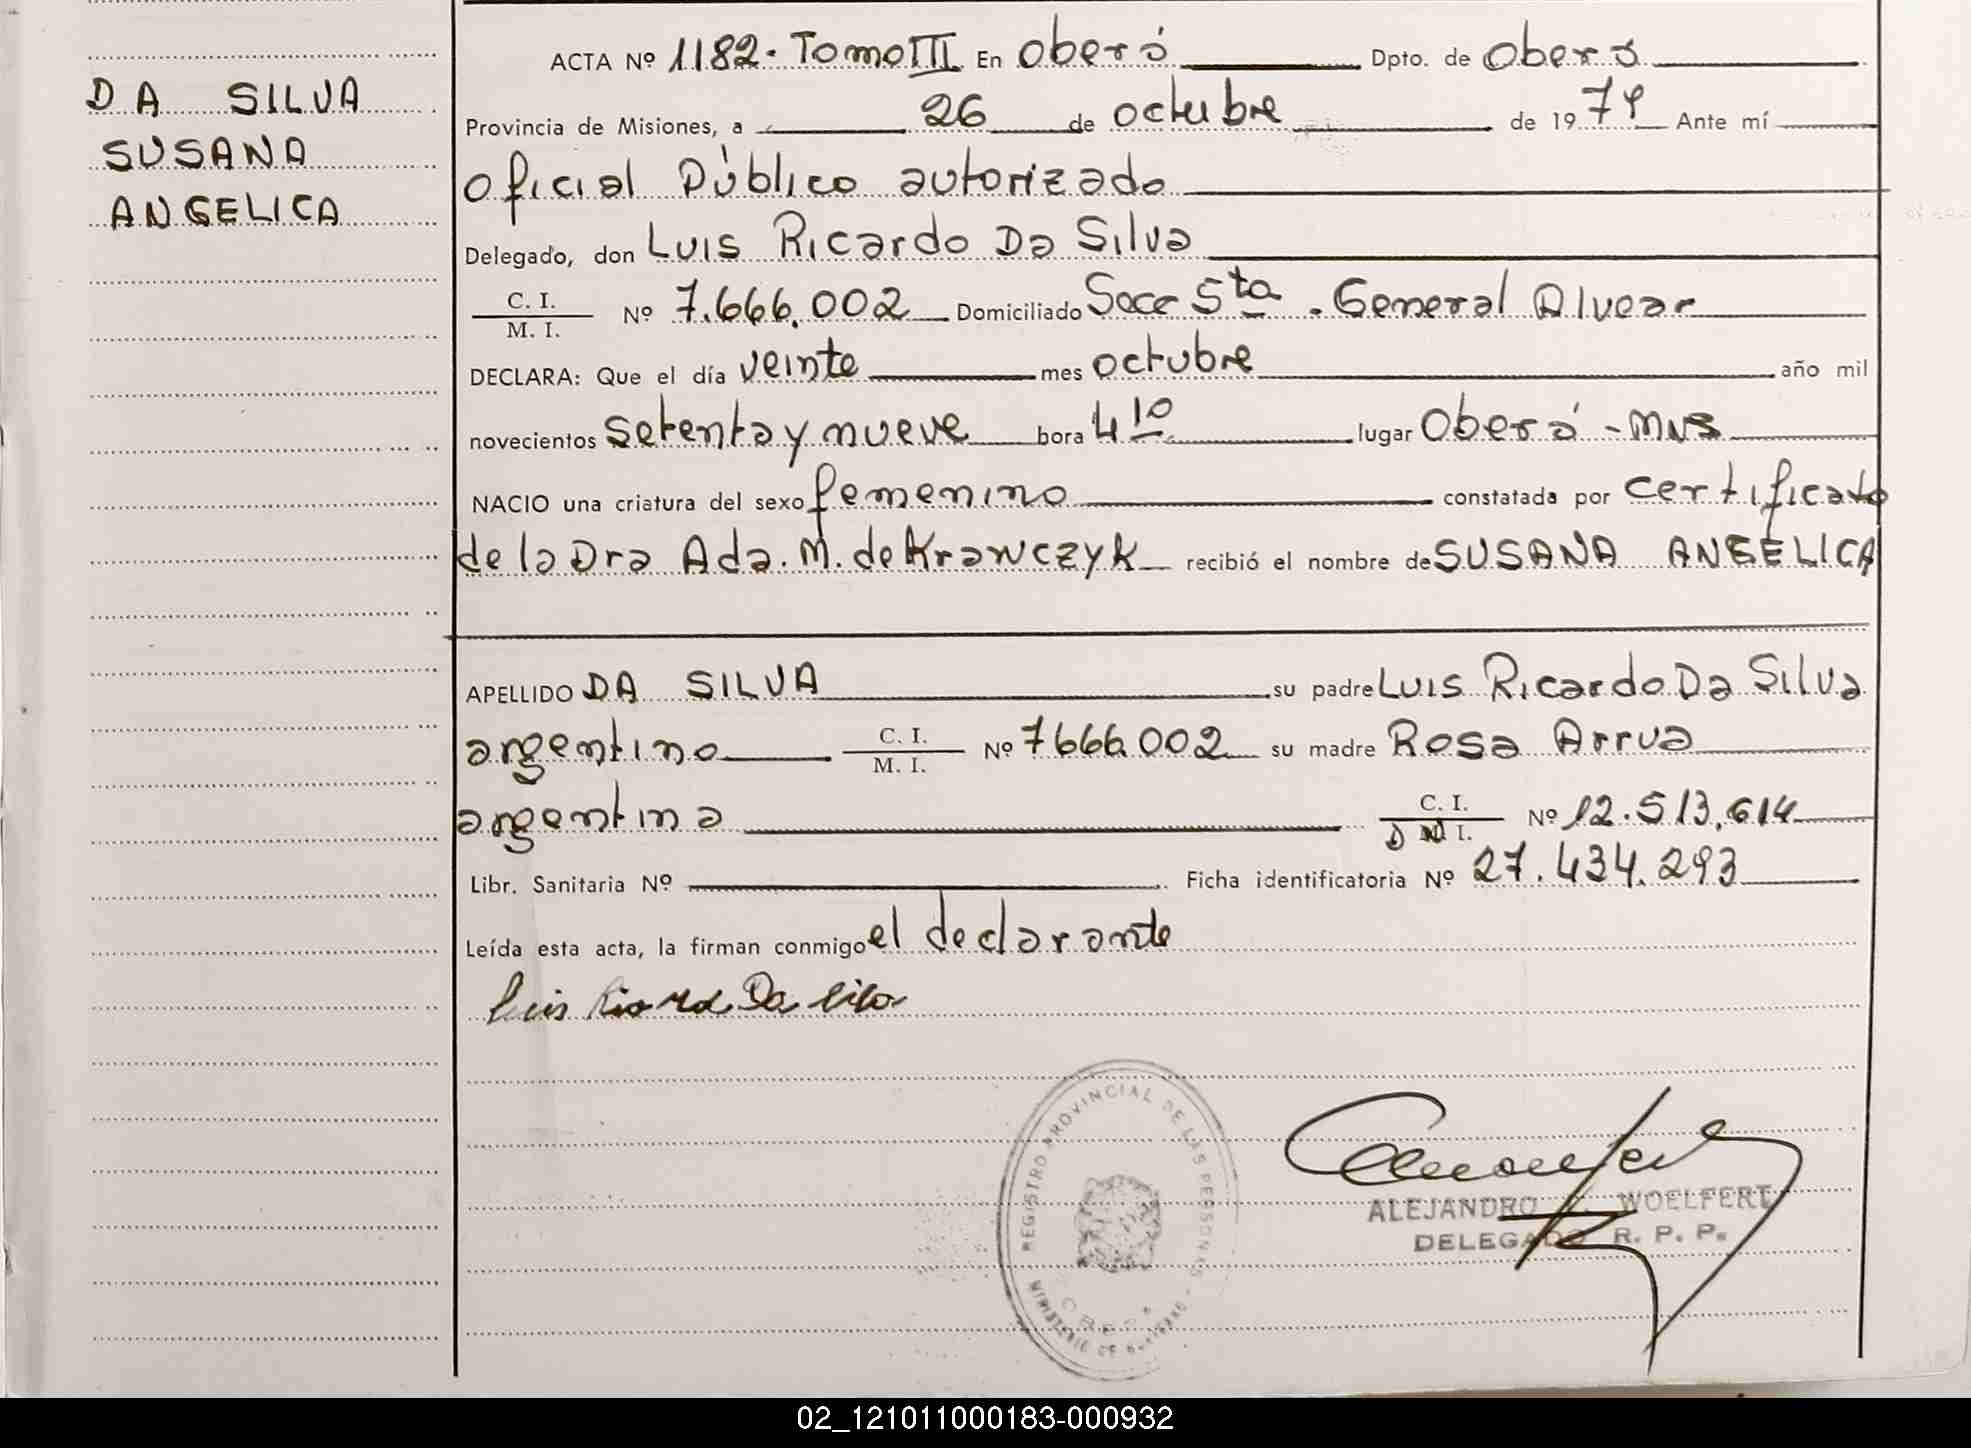 DA SILVA
SUSANA
ANGELICA
ACTA Nº 1182. Tomo III En Oberá Dpto. de Oberá
Provincia de Misiones, a 26 de octubre de 1979 Ante mí
Oficial Público autorizado
Delegado, don Luis Ricardo Da Silva
C. I.
M. I.
Nº 7.666.002 Domiciliado Secc 5ta - General Alvear
DECLARA: Que el día veinte mes octubre año mil
novecientos setenta y nueve hora 4 10 lugar Oberá - Mns
NACIO una criatura del sexo femenino constatada por certificato
de la Dra Ada. M. de Krawczyk recibió el nombre de SUSANA ANGELICA
APELLIDO DA SILVA su padre Luis Ricardo Da Silva
argentino C. I.
M. I.
Nº 7666.002 su madre Rosa Arrua
argentina C. I.
D N I.
Nº 12.513.614
Libr. Sanitaria Nº Ficha identificatoria Nº 27.434.293
Leída esta acta, la firman conmigo el declarante
Luis Ricardo Da Silva
REGISTRO PROVINCIAL DE LAS PERSONAS
MINISTERIO DE GOBIERNO
ALEJANDRO WOELFERT
DELEGADO R. P. P.
02_121011000183-000932